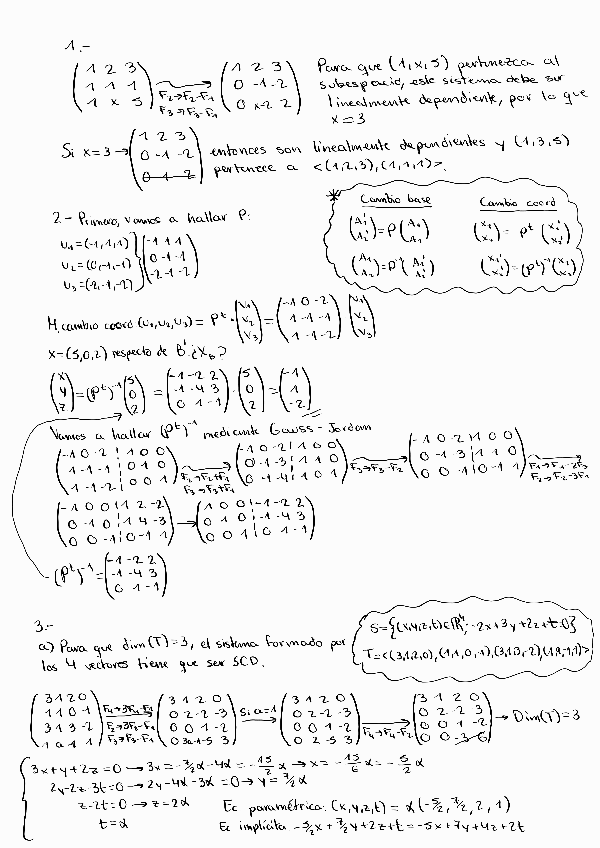 1.-
(1 2 3 / 1 1 1 / 1 x 5) F₂→F₂-F₁ F₃→F₃-F₁ (1 2 3 / 0 -1 -2 / 0 x-2 2)
Para que (1,x,5) pertenezca al
subespacio, este sistema debe ser
linealmente dependiente, por lo que
x=3
Si x=3 → (1 2 3 / 0 -1 -2 / 0 1 2) entonces son linealmente dependientes y (1,3,5)
pertenece a <(1,2,3),(1,1,1)>.
* Cambio base Cambio coord
2.- Primero, vamos a hallar P:
u₁=(-1,1,1)
u₂=(0,-1,-1)
u₃=(-2,-1,-2)
(-1 1 1 / 0 -1 -1 / -2 -1 -2)
M. cambio coord (u₁,u₂,u₃) = Pᵗ · (v₁ / v₂ / v₃) = (-1 0 -2 / 1 -1 -1 / 1 -1 -2) (v₁ / v₂ / v₃)
x=(5,0,2) respecto de B' ¿X_B?
(x / y / z) = (Pᵗ)⁻¹ (5 / 0 / 2) = (-1 -2 2 / -1 -4 3 / 0 1 -1) · (5 / 0 / 2) = (-1 / 1 / -2)
Vamos a hallar (Pᵗ)⁻¹ mediante Gauss-Jordan
(-1 0 -2 | 1 0 0 / 1 -1 -1 | 0 1 0 / 1 -1 -2 | 0 0 1) F₂→F₂+F₁ F₃→F₃+F₁ (-1 0 -2 | 1 0 0 / 0 -1 -3 | 1 1 0 / 0 -1 -4 | 1 0 1) F₃→F₃-F₂ (-1 0 -2 | 1 0 0 / 0 -1 -3 | 1 1 0 / 0 0 -1 | 0 -1 1) F₁→F₁-2F₃ F₂→F₂-3F₃
(-1 0 0 | 1 2 -2 / 0 -1 0 | 1 4 -3 / 0 0 -1 | 0 -1 1) → (1 0 0 | -1 -2 2 / 0 1 0 | -1 -4 3 / 0 0 1 | 0 1 -1)
(Pᵗ)⁻¹ = (-1 -2 2 / -1 -4 3 / 0 1 -1)
3.-
a) Para que dim(T)=3, el sistema formado por
los 4 vectores tiene que ser SCD.
S={(x,y,z,t)∈ℝ⁴: -2x+3y+2z+t=0}
T=<(3,1,2,0),(1,1,0,-1),(3,1,3,-2),(1,a,1,1)>
(3 1 2 0 / 1 1 0 -1 / 3 1 3 -2 / 1 a 1 1) F₄→3F₄-F₁ F₂→3F₂-F₁ F₃→F₃-F₁ (3 1 2 0 / 0 2 -2 -3 / 0 0 1 -2 / 0 3a-1 -5 3) Si a=1 (3 1 2 0 / 0 2 -2 -3 / 0 0 1 -2 / 0 2 -5 3) F₄→F₄-F₂ (3 1 2 0 / 0 2 -2 3 / 0 0 1 -2 / 0 0 -3 6) → Dim(T)=3
3x+y+2z=0 → 3x=-7/2α-4α=-15/2α → x=-15/6α=-5/2α
2y-2z-3t=0 → 2y-4α-3α=0 → y=7/2α
z-2t=0 → z=2α
t=α
Ec paramétrica: (x,y,z,t) = α(-5/2, 7/2, 2, 1)
Ec implícita -5/2x+7/2y+2z+t=-5x+7y+4z+2t